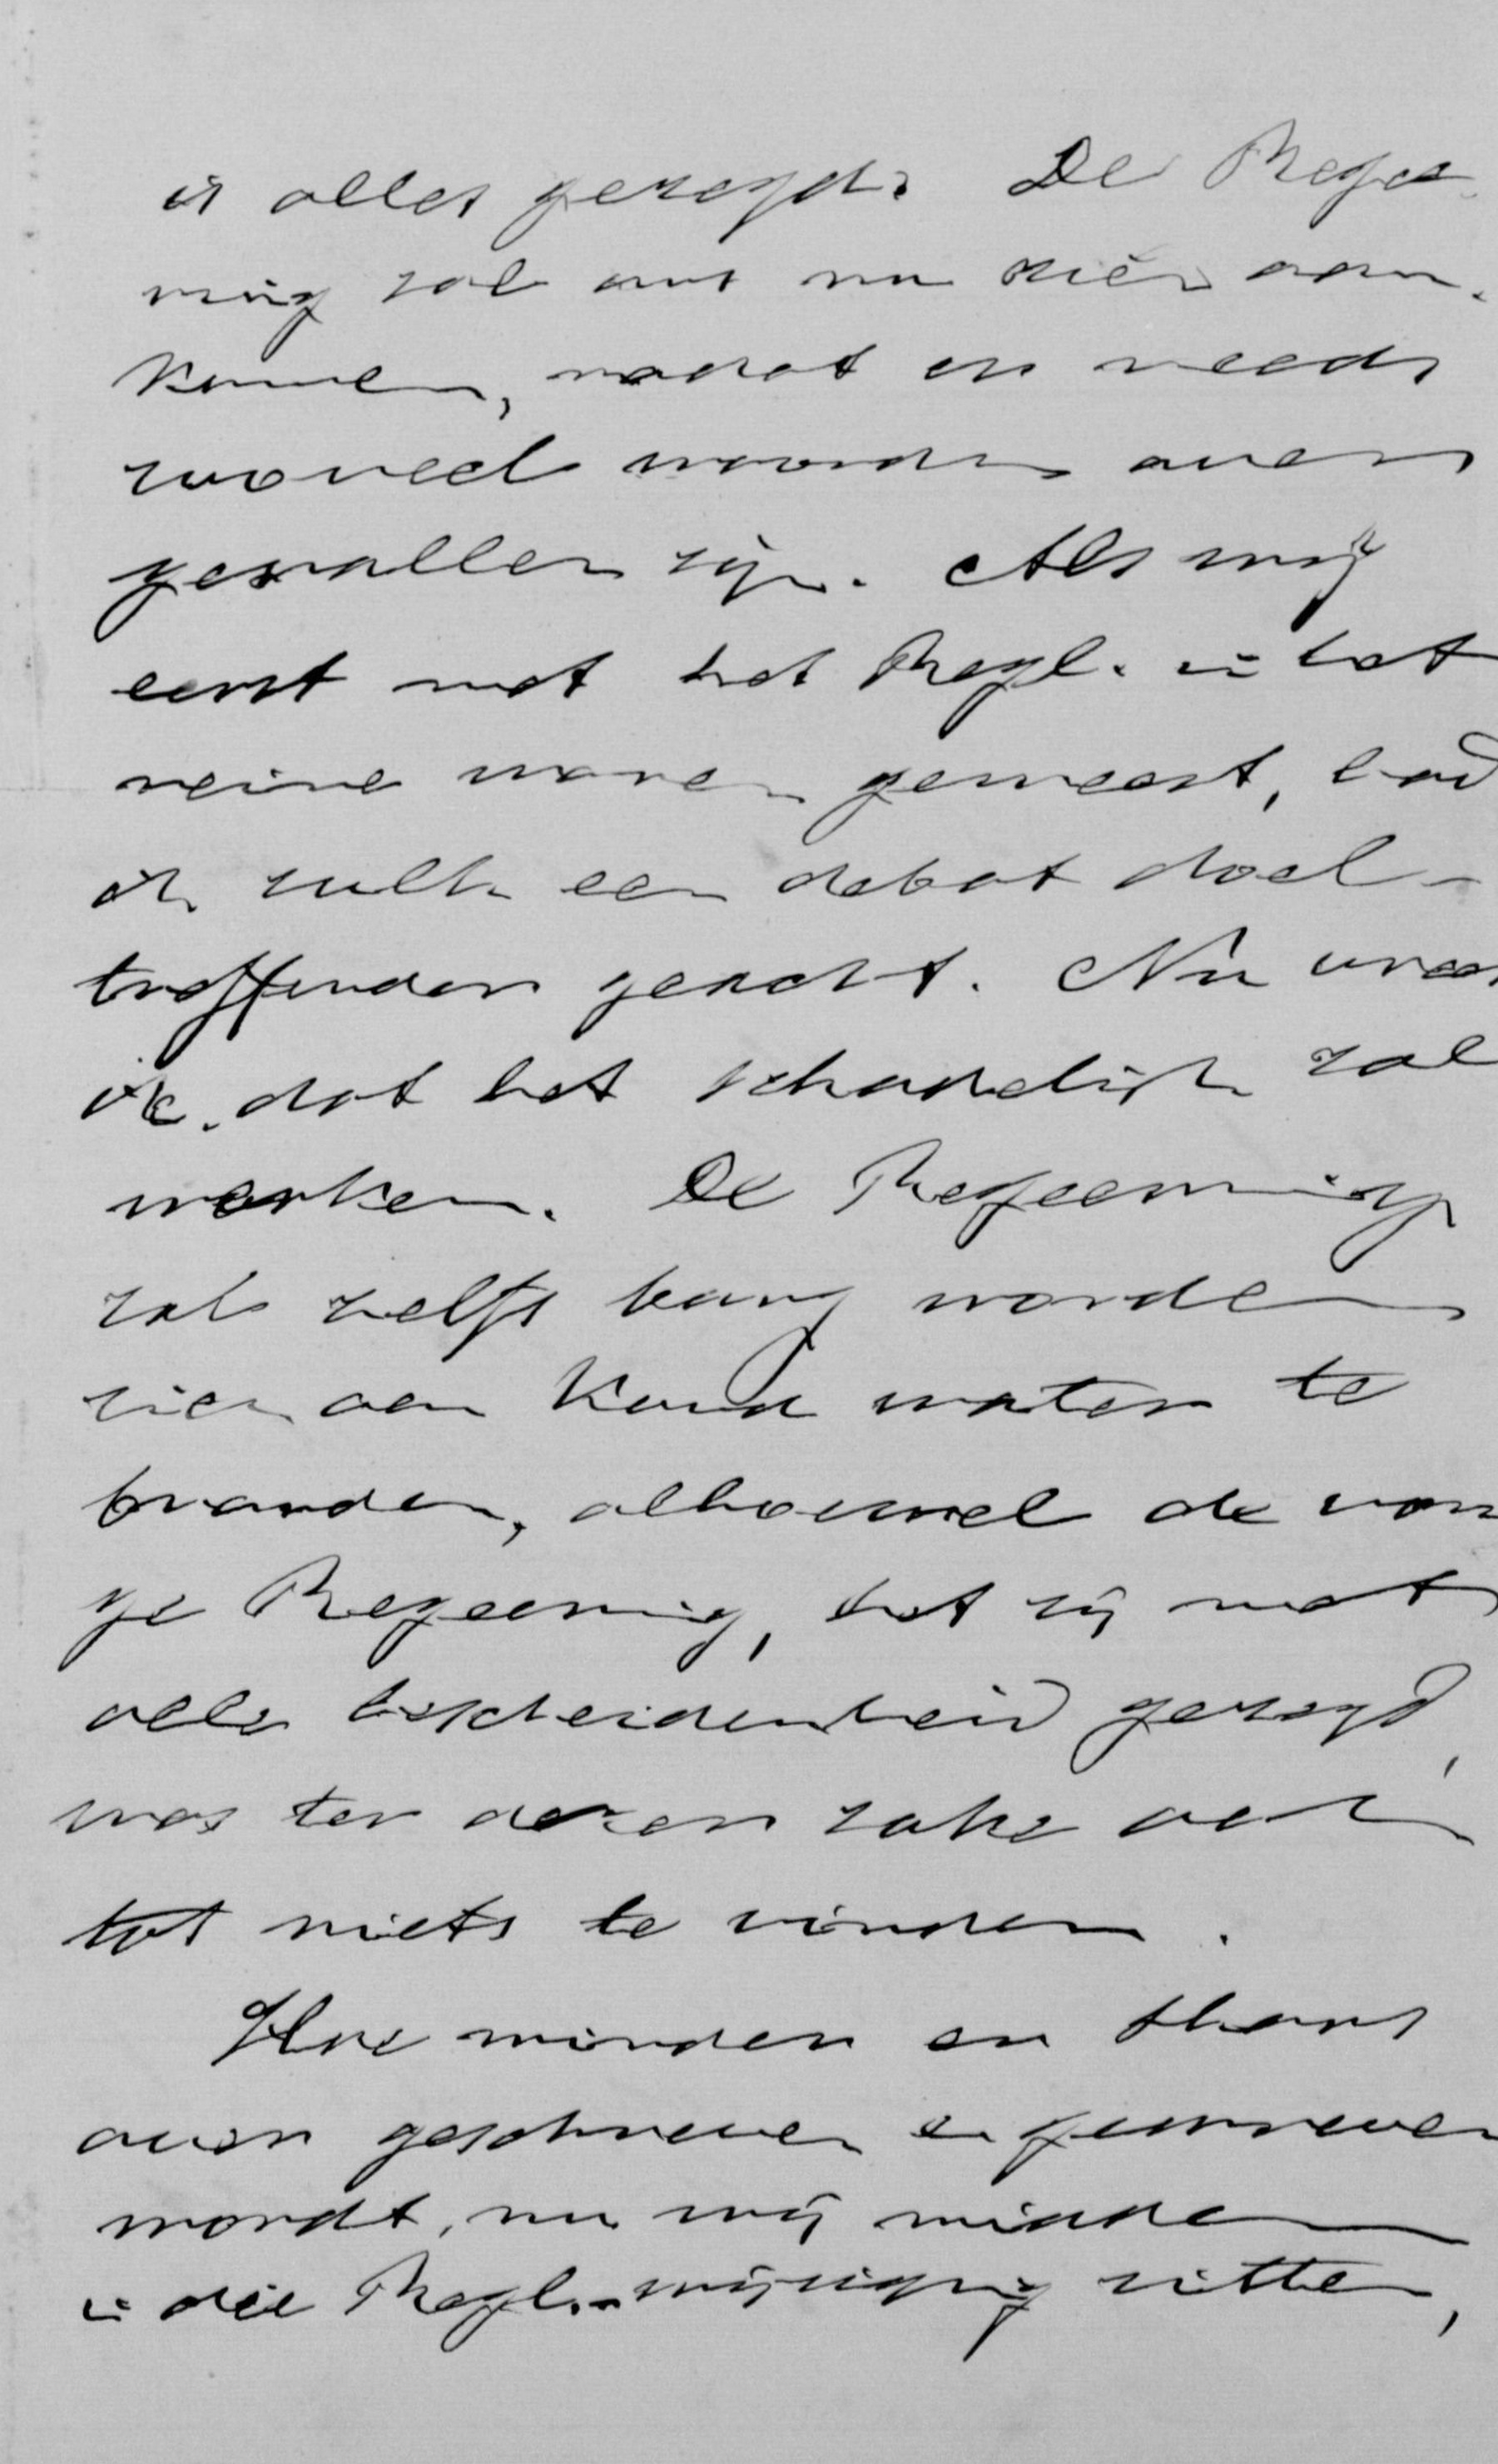 is alles gezegd. De Regee-
ring zal ons nu niet aan-
komen, nadat er reeds
zooveel woorden over
gevallen zijn. Als wij
eerst met het Regl. in het
reine waren geweest, had
ik zulk een debat doel-
treffender geacht. Nu vrees
ik dat het schadelijk zal
werken. De Regeering
zal zelfs bang worden
zich aan koud water te
branden, alhoewel de vori
ge Regeering, het zij met
alle bescheidenheid gezegd,
was ter dezer zake ook
tot niets te vinden.
Hoe minder er thans
over geschreven en gewreven
wordt, nu wij midden
in die Regl.-wijziging zitten,